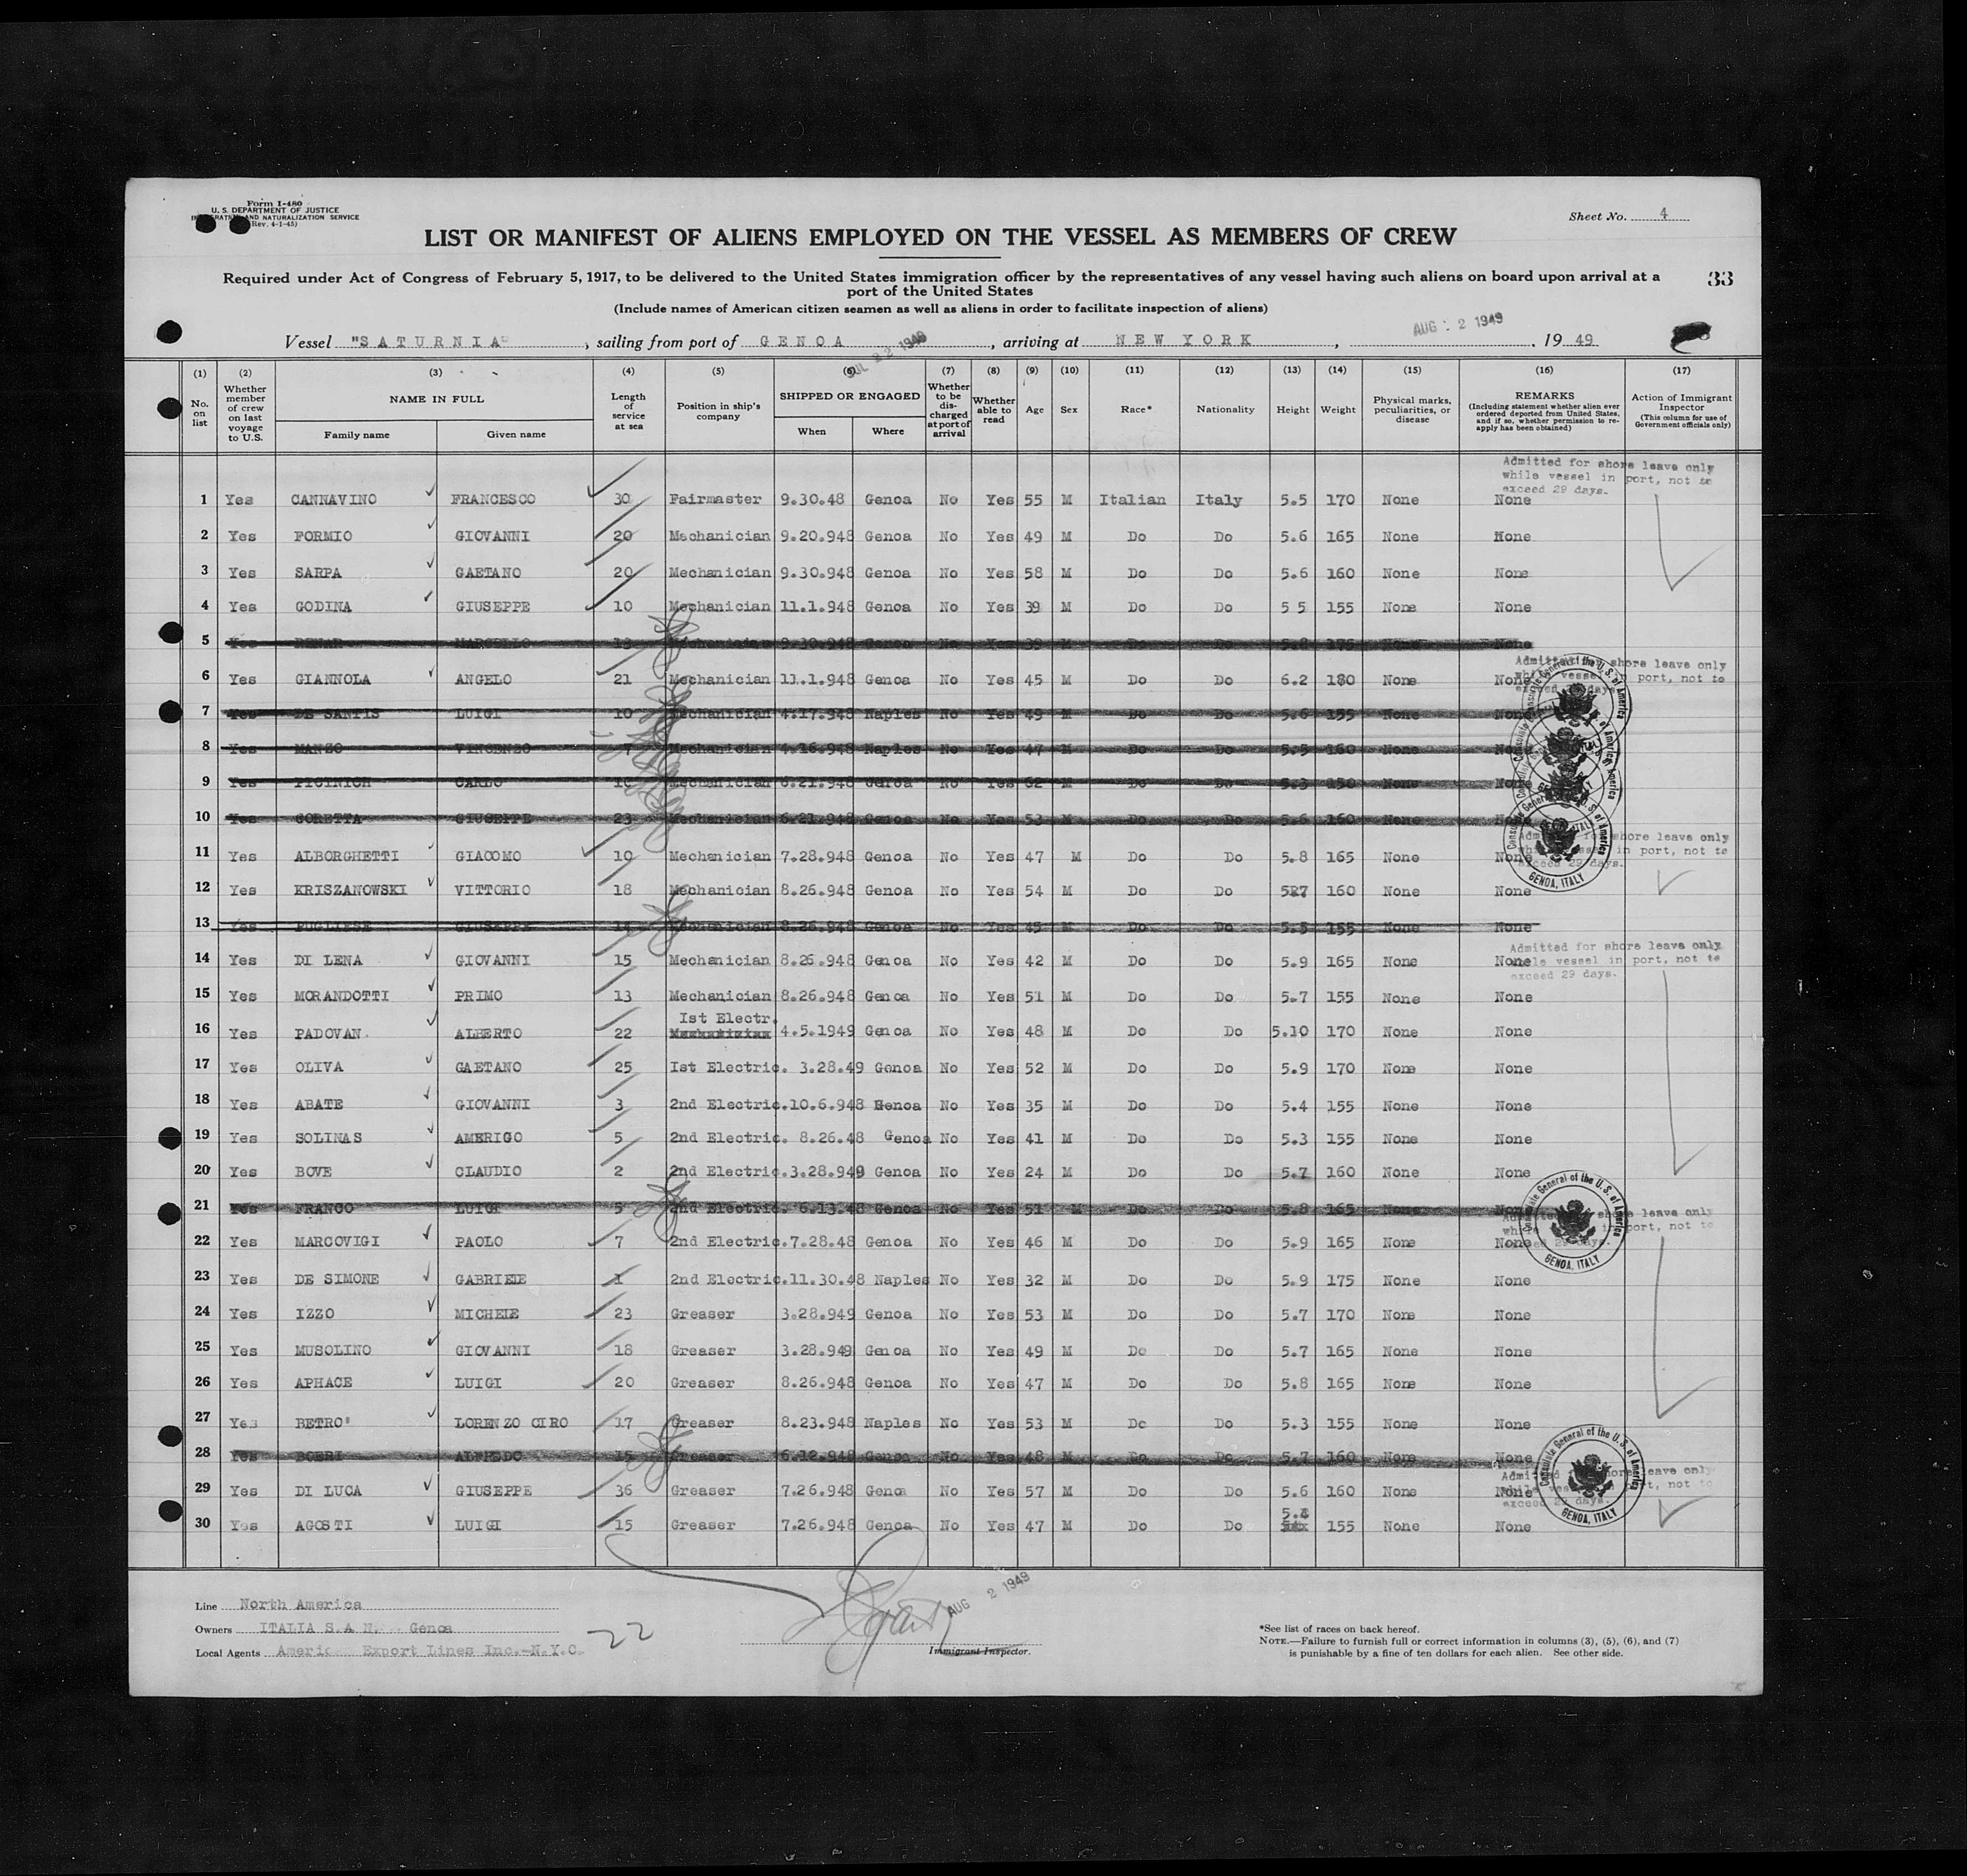 Form I-480
U. S. DEPARTMENT OF JUSTICE
AND NATURALIZATION SERVICE
(Rev. 4-1-45)
Sheet No. 4
LIST OR MANIFEST OF ALIENS EMPLOYED ON THE VESSEL AS MEMBERS OF CREW
Required under Act of Congress of February 5, 1917, to be delivered to the United States immigration officer by the representatives of any vessel having such aliens on board upon arrival at a
port of the United States
33
(Include names of American citizen seamen as well as aliens in order to facilitate inspection of aliens)
AUG 2 1949
Vessel "SATURNIA", sailing from port of GENOA JUL 22 1949, arriving at NEW YORK, 1949
(1) (2) (3) (4) (5) (6) (7) (8) (9) (10) (11) (12) (13) (14) (15) (16) (17)
No. on list
Whether member of crew on last voyage to U.S.
NAME IN FULL
Family name
Given name
Length of service at sea
Position in ship's company
SHIPPED OR ENGAGED
When
Where
Whether to be discharged at port of arrival
Whether able to read
Age
Sex
Race*
Nationality
Height
Weight
Physical marks, peculiarities, or disease
REMARKS
(Including statement whether alien ever ordered deported from United States, and if so, whether permission to reapply has been obtained)
Action of Immigrant Inspector
(This column for use of Government officials only)
Admitted for shore leave only
while vessel in port, not to
exceed 29 days.
1 Yes CANNAVINO FRANCESCO 30 Fairmaster 9.30.48 Genoa No Yes 55 M Italian Italy 5.5 170 None None
2 Yes FORMIO GIOVANNI 20 Mechanician 9.20.948 Genoa No Yes 49 M Do Do 5.6 165 None None
3 Yes SARPA GAETANO 20 Mechanician 9.30.948 Genoa No Yes 58 M Do Do 5.6 160 None None
4 Yes GODINA GIUSEPPE 10 Mechanician 11.1.948 Genoa No Yes 39 M Do Do 5 5 155 None None
5 Yes MARCELLO 13 Mechanician 9.30.948 Genoa No Yes 39 M Do Do 5.8 175 None None
Admitted for shore leave only
while vessel in port, not to
exceed 29 days.
6 Yes GIANNOLA ANGELO 21 Mechanician 11.1.948 Genoa No Yes 45 M Do Do 6.2 180 None None
7 Yes DE SANTIS LUIGI 10 Mechanician 4.17.948 Naples No Yes 49 M Do Do 5.6 155 None None
8 Yes MANZO VINCENZO 7 Mechanician 4.16.948 Naples No Yes 47 M Do Do 5.5 160 None None
9 Yes PICINICH CARLO Mechanician 6.21.948 Genoa No Yes 62 M Do Do 5.3 150 None None
10 Yes CORETTA GIUSEPPE 23 Mechanician 6.21.948 Genoa No Yes 53 M Do Do 5.6 160 None None
Admitted for shore leave only
while vessel in port, not to
exceed 29 days.
11 Yes ALBORGHETTI GIACOMO 10 Mechanician 7.28.948 Genoa No Yes 47 M Do Do 5.8 165 None None
12 Yes KRISZANOWSKI VITTORIO 18 Mechanician 8.26.948 Genoa No Yes 54 M Do Do 5.7 160 None None
13 Yes PUGLIESE GIUSEPPE 14 Mechanician 8.26.948 Genoa No Yes 45 M Do Do 5.5 155 None None
Admitted for shore leave only
while vessel in port, not to
exceed 29 days.
14 Yes DI LENA GIOVANNI 15 Mechanician 8.26.948 Genoa No Yes 42 M Do Do 5.9 165 None None
15 Yes MORANDOTTI PRIMO 13 Mechanician 8.26.948 Genoa No Yes 51 M Do Do 5.7 155 None None
16 Yes PADOVAN ALBERTO 22 Ist Electr. Mechanician 4.5.1949 Genoa No Yes 48 M Do Do 5.10 170 None None
17 Yes OLIVA GAETANO 25 Ist Electric. 3.28.49 Genoa No Yes 52 M Do Do 5.9 170 None None
18 Yes ABATE GIOVANNI 3 2nd Electric. 10.6.948 Genoa No Yes 35 M Do Do 5.4 155 None None
19 Yes SOLINAS AMERIGO 5 2nd Electric. 8.26.48 Genoa No Yes 41 M Do Do 5.3 155 None None
20 Yes BOVE CLAUDIO 2 2nd Electric. 3.28.949 Genoa No Yes 24 M Do Do 5.7 160 None None
21 Yes FRANCO LUIGI 5 2nd Electric. 6.13.48 Genoa No Yes 51 M Do Do 5.8 165 None None
Admitted for shore leave only
while vessel in port, not to
exceed 29 days.
22 Yes MARCOVIGI PAOLO 7 2nd Electric. 7.28.48 Genoa No Yes 46 M Do Do 5.9 165 None None
23 Yes DE SIMONE GABRIELE 1 2nd Electric. 11.30.48 Naples No Yes 32 M Do Do 5.9 175 None None
24 Yes IZZO MICHELE 23 Greaser 3.28.949 Genoa No Yes 53 M Do Do 5.7 170 None None
25 Yes MUSOLINO GIOVANNI 18 Greaser 3.28.949 Genoa No Yes 49 M Do Do 5.7 165 None None
26 Yes APHACE LUIGI 20 Greaser 8.26.948 Genoa No Yes 47 M Do Do 5.8 165 None None
27 Yes BETRO' LORENZO CIRO 17 Greaser 8.23.948 Naples No Yes 53 M Do Do 5.3 155 None None
28 Yes BOERI ALFREDO 15 Greaser 6.12.948 Genoa No Yes 48 M Do Do 5.7 160 None None
Admitted for shore leave only
while vessel in port, not to
exceed 29 days.
29 Yes DI LUCA GIUSEPPE 36 Greaser 7.26.948 Genoa No Yes 57 M Do Do 5.6 160 None None
30 Yes AGOSTI LUIGI 15 Greaser 7.26.948 Genoa No Yes 47 M Do Do 5.4 155 None None
Consulate General of the U. S. of America
GENOA, ITALY
Consulate General of the U. S. of America
GENOA, ITALY
Consulate General of the U. S. of America
GENOA, ITALY
Line North America
Owners ITALIA S.A.N. Genoa
Local Agents Export Lines Inc.-N.Y.C.
22
AUG 2 1949
Immigrant Inspector.
*See list of races on back hereof.
NOTE.—Failure to furnish full or correct information in columns (3), (5), (6), and (7)
is punishable by a fine of ten dollars for each alien. See other side.